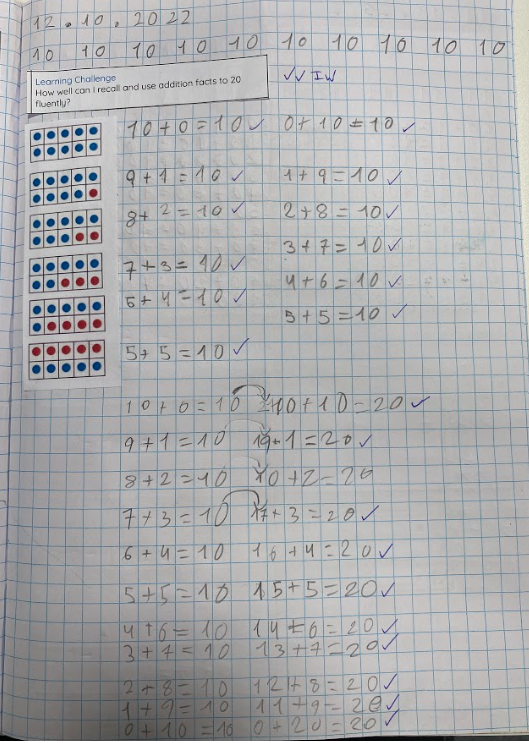 12.10.2022
10 10 10 10 10 10 10 10 10 10
Learning Challenge
How well can I recall and use addition facts to 20
fluently?
✓✓ I W
10+0=10 ✓ 0+10=10 ✓
9+1=10 ✓ 1+9=10 ✓
8+2=10 ✓ 2+8=10 ✓
3+7=10 ✓
7+3=10 ✓
4+6=10 ✓
6+4=10 ✓
5+5=10 ✓
5+5=10 ✓
10+0=10 10+10=20 ✓
9+1=10 19+1=20 ✓
8+2=10 10+2=20
7+3=10 17+3=20 ✓
6+4=10 16+4=20 ✓
5+5=10 15+5=20 ✓
4+6=10 14+6=20 ✓
3+7=10 13+7=20 ✓
2+8=10 12+8=20 ✓
1+9=10 11+9=20 ✓
0+10=10 0+20=20 ✓